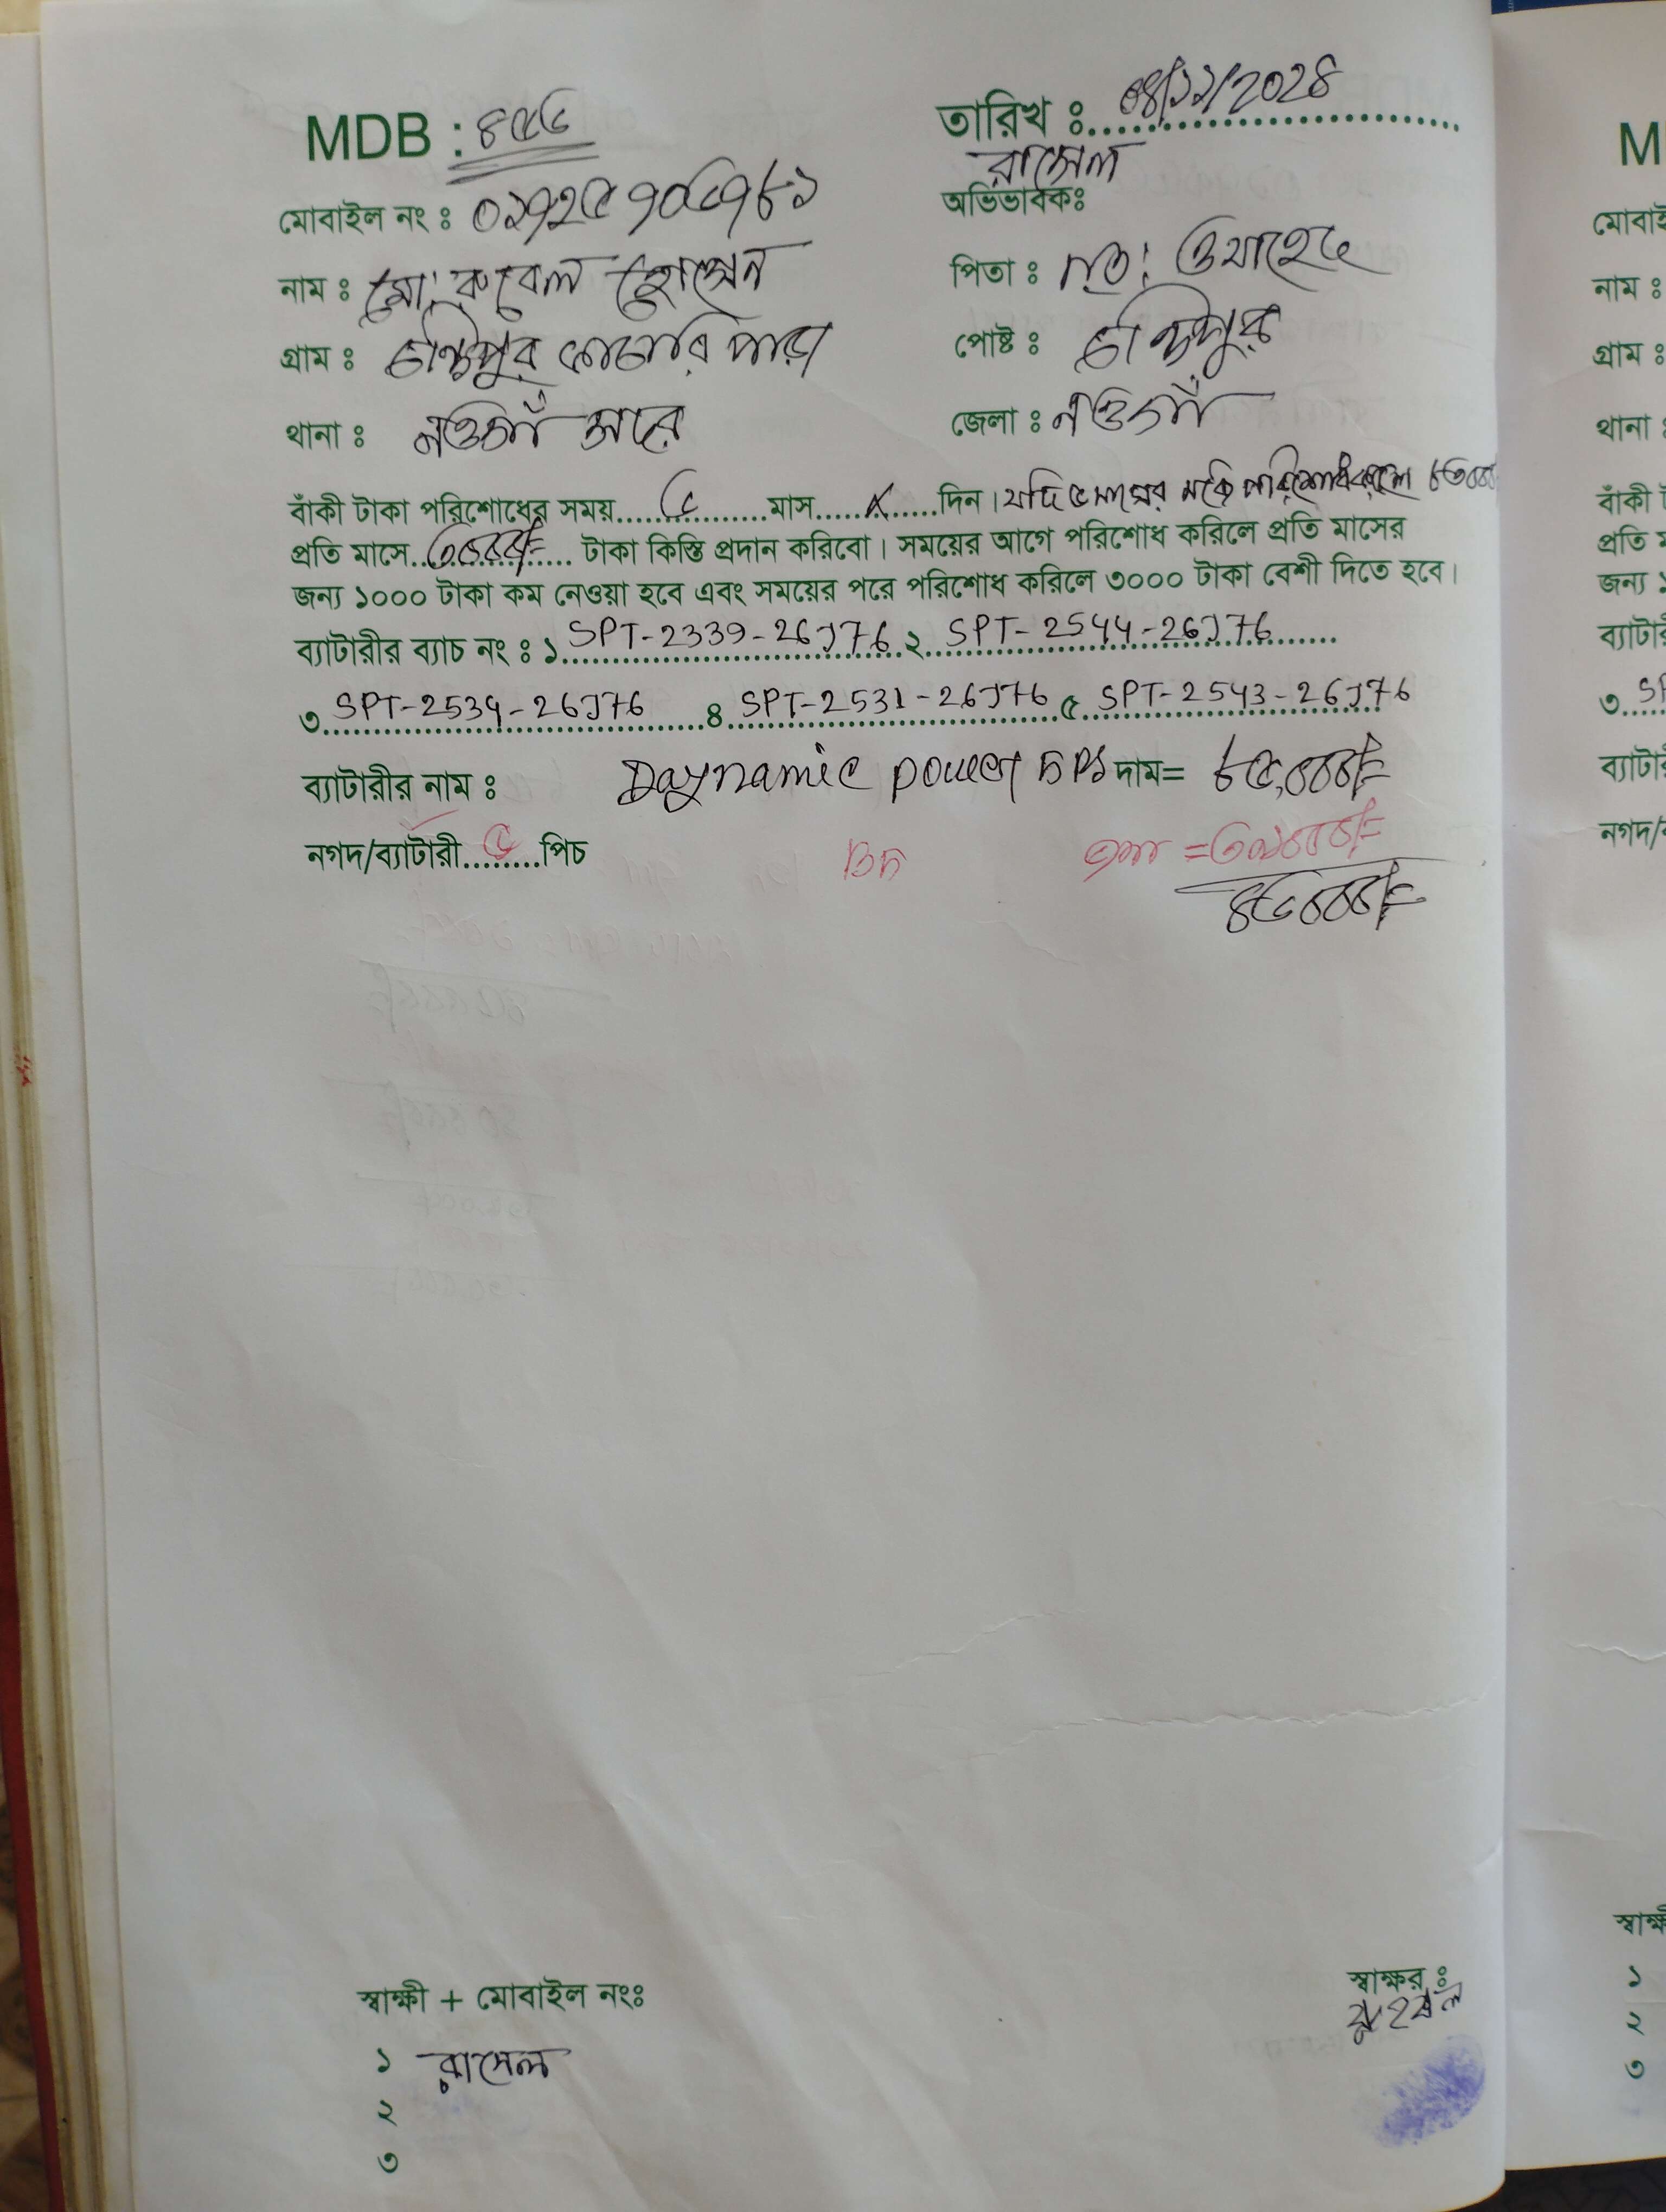 MDB : ৪৫৬
তারিখ ঃ ০৪/১১/2024
রাসেল
মোবাইল নং ঃ ০১৭২৫৭০৬৭৮১
অভিভাবকঃ
নাম ঃ মো: রুবেল হোসেন
পিতা ঃ মো: ওয়াহেদ
গ্রাম ঃ চন্ডিপুর কাচারি পাড়া
পোষ্ট ঃ চন্ডিপুর
থানা ঃ নওগাঁ সদর
জেলা ঃ নওগাঁ
বাঁকী টাকা পরিশোধের সময়.....৫.....মাস.....X.....দিন। যদি ৫ মাসের মধ্যে পরিশোধ করলে ৮৩০০০
প্রতি মাসে.............. টাকা কিস্তি প্রদান করিবো। সময়ের আগে পরিশোধ করিলে প্রতি মাসের
জন্য ১০০০ টাকা কম নেওয়া হবে এবং সময়ের পরে পরিশোধ করিলে ৩০০০ টাকা বেশী দিতে হবে।
ব্যাটারীর ব্যাচ নং ঃ ১ SPT-2339-26J76 ২ SPT-2544-26J76
৩ SPT-2534-26J76 ৪ SPT-2531-26J76 ৫ SPT-2543-26J76
ব্যাটারীর নাম ঃ Daynamic power 5 Ps দাম= ৮৫,০০০/=
নগদ/ব্যাটারী...৫...পিচ = ৩৯০০০/=
৪৬০০০/=
স্বাক্ষী + মোবাইল নংঃ
স্বাক্ষর ঃ
১ রাসেল
২
৩
M
মোবাই
নাম ঃ
গ্রাম ঃ
থানা ঃ
বাঁকী
প্রতি
জন্য
ব্যাটারী
৩ SP
ব্যাটারী
নগদ/
স্বাক্ষী
১
২
৩